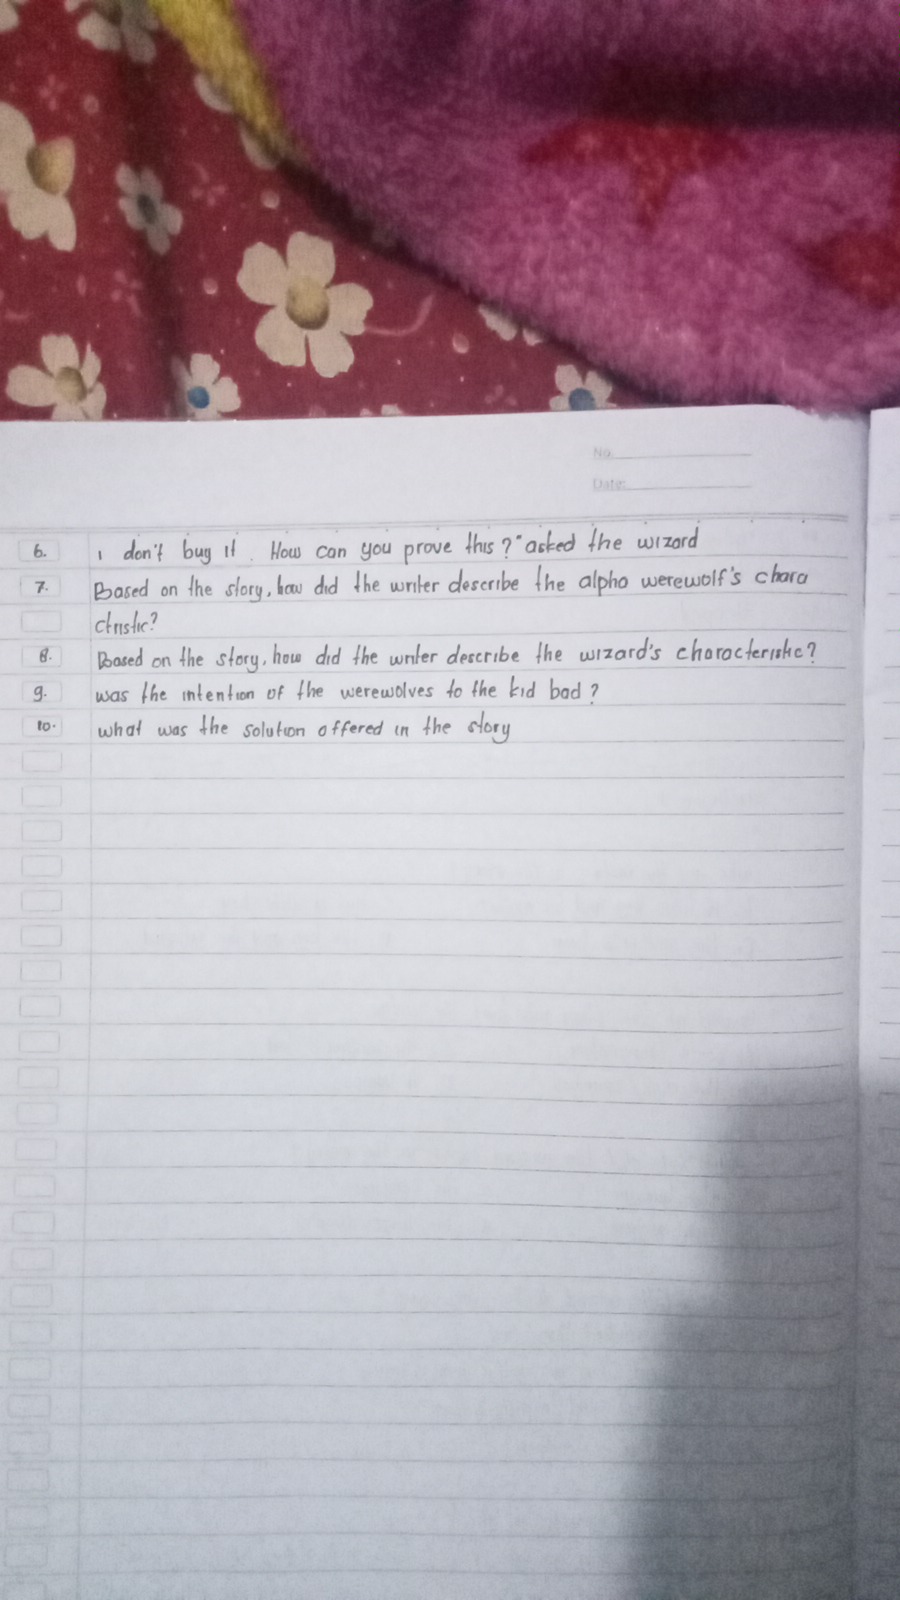 No.
Date:
6. I don't bug it. How can you prove this?" asked the wizard
7. Based on the story, how did the writer describe the alpha werewolf's chara
ctristic?
8. Based on the story, how did the writer describe the wizard's characteristic?
9. was the intention of the werewolves to the kid bad?
10. what was the solution offered in the story